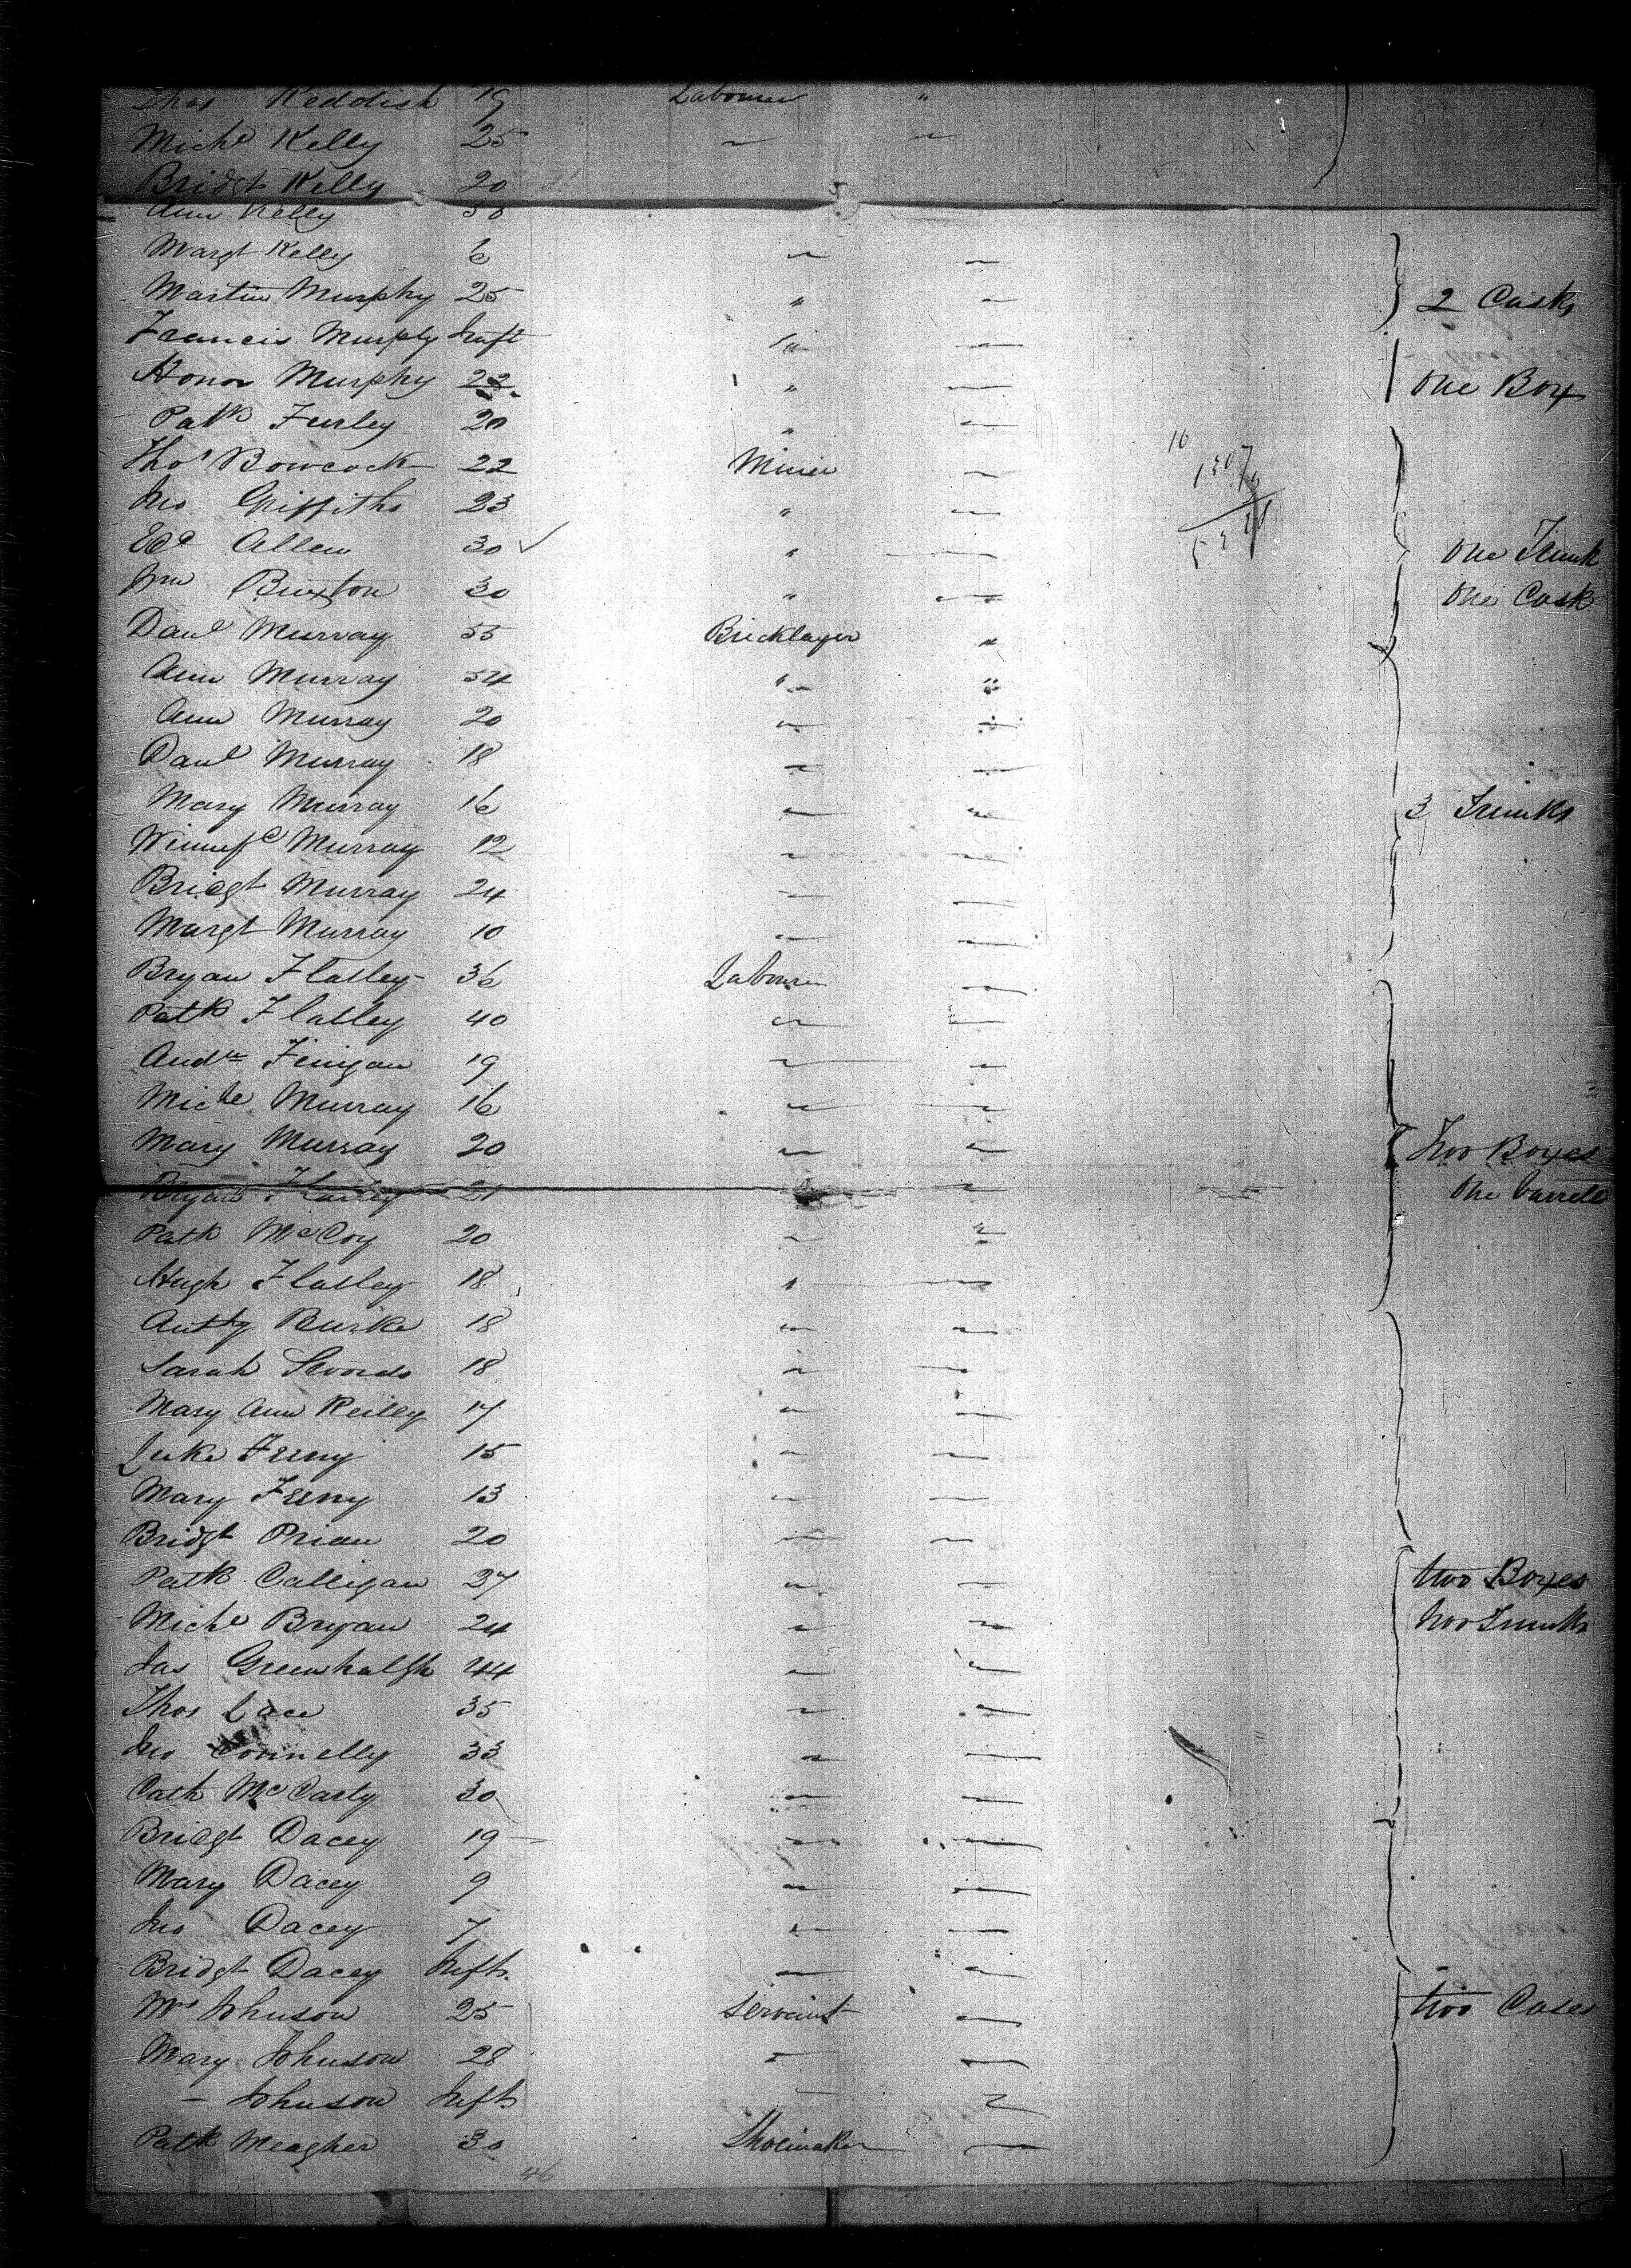 Thos Reddish 19 Labourer "
Michl Kelly 25 " "
Bridgt Kelly 20
Ann Kelly 30
Margt Kelly 6 " "
Martin Murphy 25 " " 2 Casks
Francis Murphy Inft " "
Honor Murphy 22 " " One Box
Patk Furley 20 " "
Thos Bowcock 22 Miner "
Jno Griffiths 23 " "
Edd Allen 30 ✓ " " One Trunk
Wm Buxton 30 " " One Cask
Danl Murray 55 Bricklayer "
Ann Murray 54 " "
Ann Murray 20 " "
Danl Murray 18 " "
Mary Murray 16 " " 3 Trunks
Winnefd Murray 12 " "
Bridgt Murray 24 " "
Margt Murray 10 " "
Bryan Flatley 36 Labourer "
Patk Flatley 40 " "
Andw Finigan 19 " "
Michl Murray 16 " "
Mary Murray 20 " " Two Boxes
Bryan 21 " " One barrell
Patk McCoy 20 " "
Hugh Flatley 18 " "
Antty Burke 18 " "
Sarah Swords 18 " "
Mary Ann Reilly 17 " "
Luke Feeny 15 " "
Mary Feeny 13 " "
Bridgt Prian 20 " "
Patk Calligan 37 " " two Boxes
Michl Bryan 24 " " two Trunks
Jas Greenhalgh 44 " "
Thos Lace 35 " "
Jno Connelly 33 " "
Cath McCarty 30 " "
Bridgt Dacey 19 " "
Mary Dacey 9 " "
Jno Dacey 7 " "
Bridgt Dacey Inft. " "
Mrs Johnson 25 Servant " two Cases
Mary Johnson 28 " "
— Johnson Inft " "
Patk Meagher 30 Shoemaker "
46